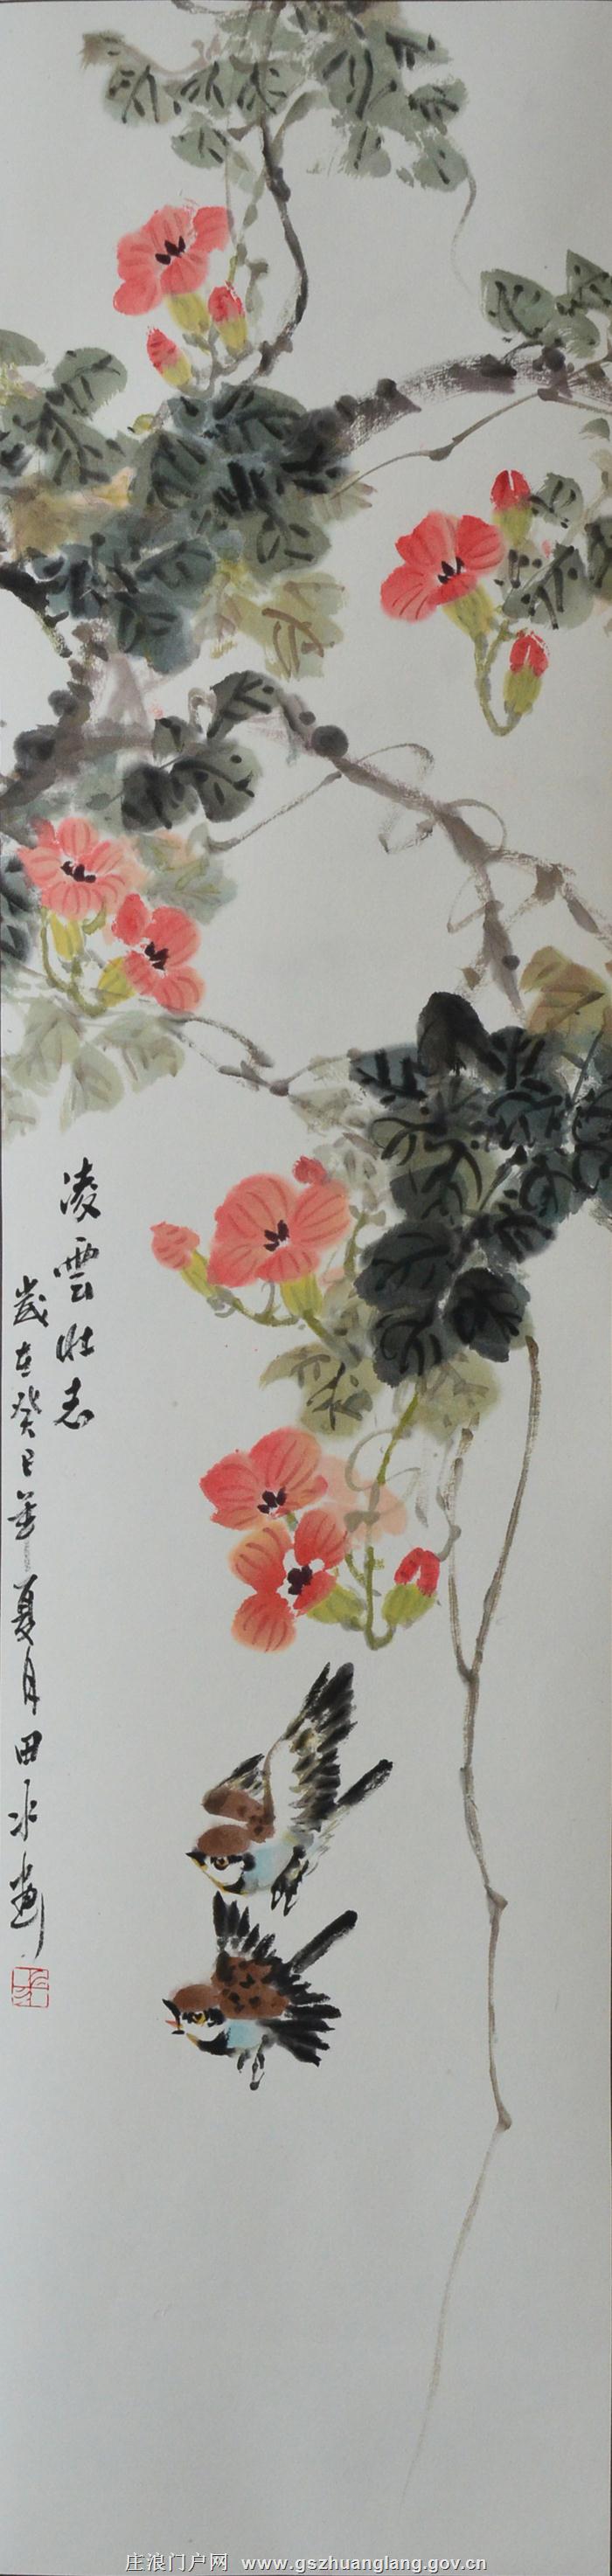 凌雲壮志
歲在癸巳年夏月田水畫
庄浪门户网 www.gszhuanglang.gov.cn